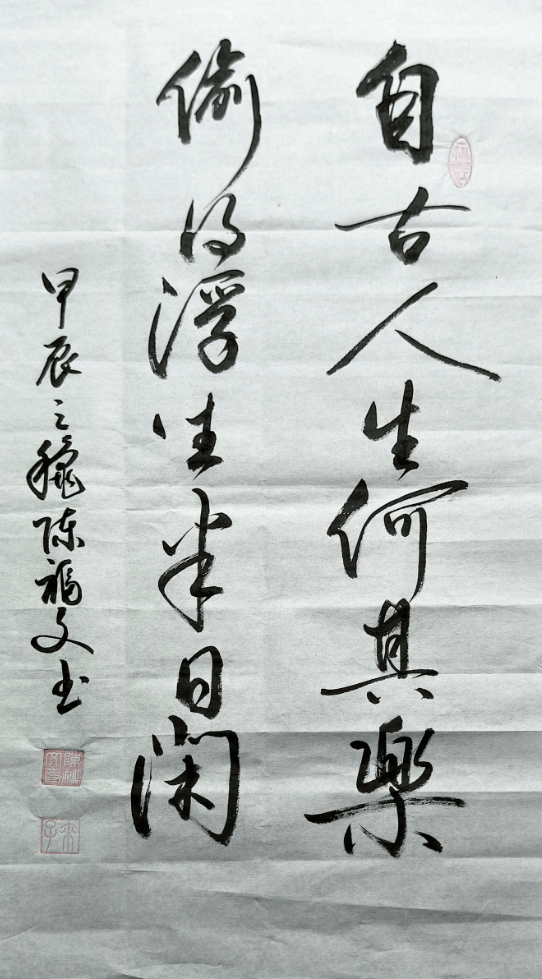 自古人生何其樂
偷得浮生半日闲
甲辰之龝陈福文书